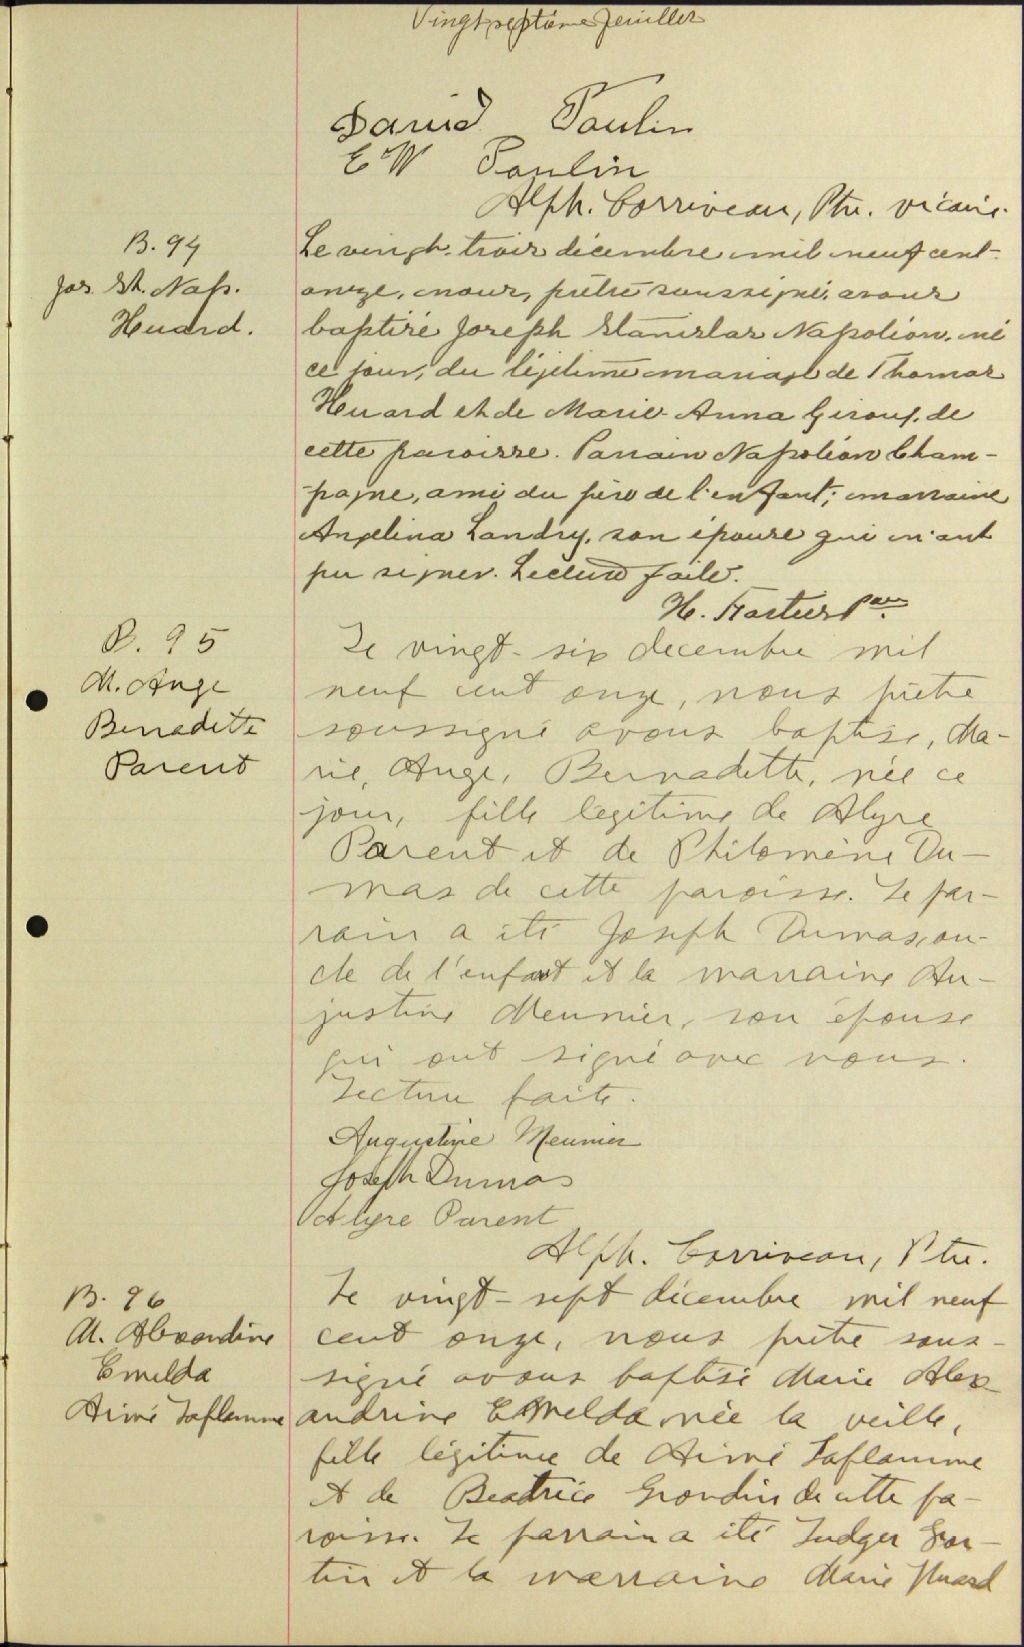 Vingt septième feuillet
David Poulin
E W Poulin
Alph. Corriveau, Ptre. vicaire.
B. 94
Jos. St. Nap.
Huard.
Le vingt-trois décembre mil neuf cent-
onze, nous, prêtre soussigné, avons
baptisé Joseph Stanislas Napoléon, né
ce jour, du légitime mariage de Thomas
Huard et de Marie-Anna Giroux, de
cette paroisse. Parrain Napoléon Cham-
pagne, ami du père de l'enfant; marraine
Angelina Landry, son épouse qui n'ont
pu signer. Lecture faite.
H.
B. 95
M. Ange
Bernadette
Parent
Le vingt-six decembre mil
neuf cent onze, nous prêtre
soussigné avons baptisé, Ma-
rie, Ange, Bernadette, née ce
jour, fille légitime de Alyre
Parent et de Philomène Du-
mas de cette paroisse. Le par-
rain a été Joseph Dumas, on-
cle de l'enfant et la marraine Au-
gustine Meunier, son épouse
qui ont signé avec nous.
Lecture faite.
Augustine Meunier
Joseph Dumas
Alyre Parent
Alph. Corriveau, Ptre.
B. 96
M. Alexandrine
Emelda
Aimé Laflamme
Le vingt-sept décembre mil neuf
cent onze, nous prêtre sous-
signé avons baptisé Marie Alex-
andrine Emelda née la veille,
fille légitime de Aimé Laflamme
et de Beatrice Grondin de cette pa-
roisse. Le parrain a été Ludger
et la marraine Marie Huard